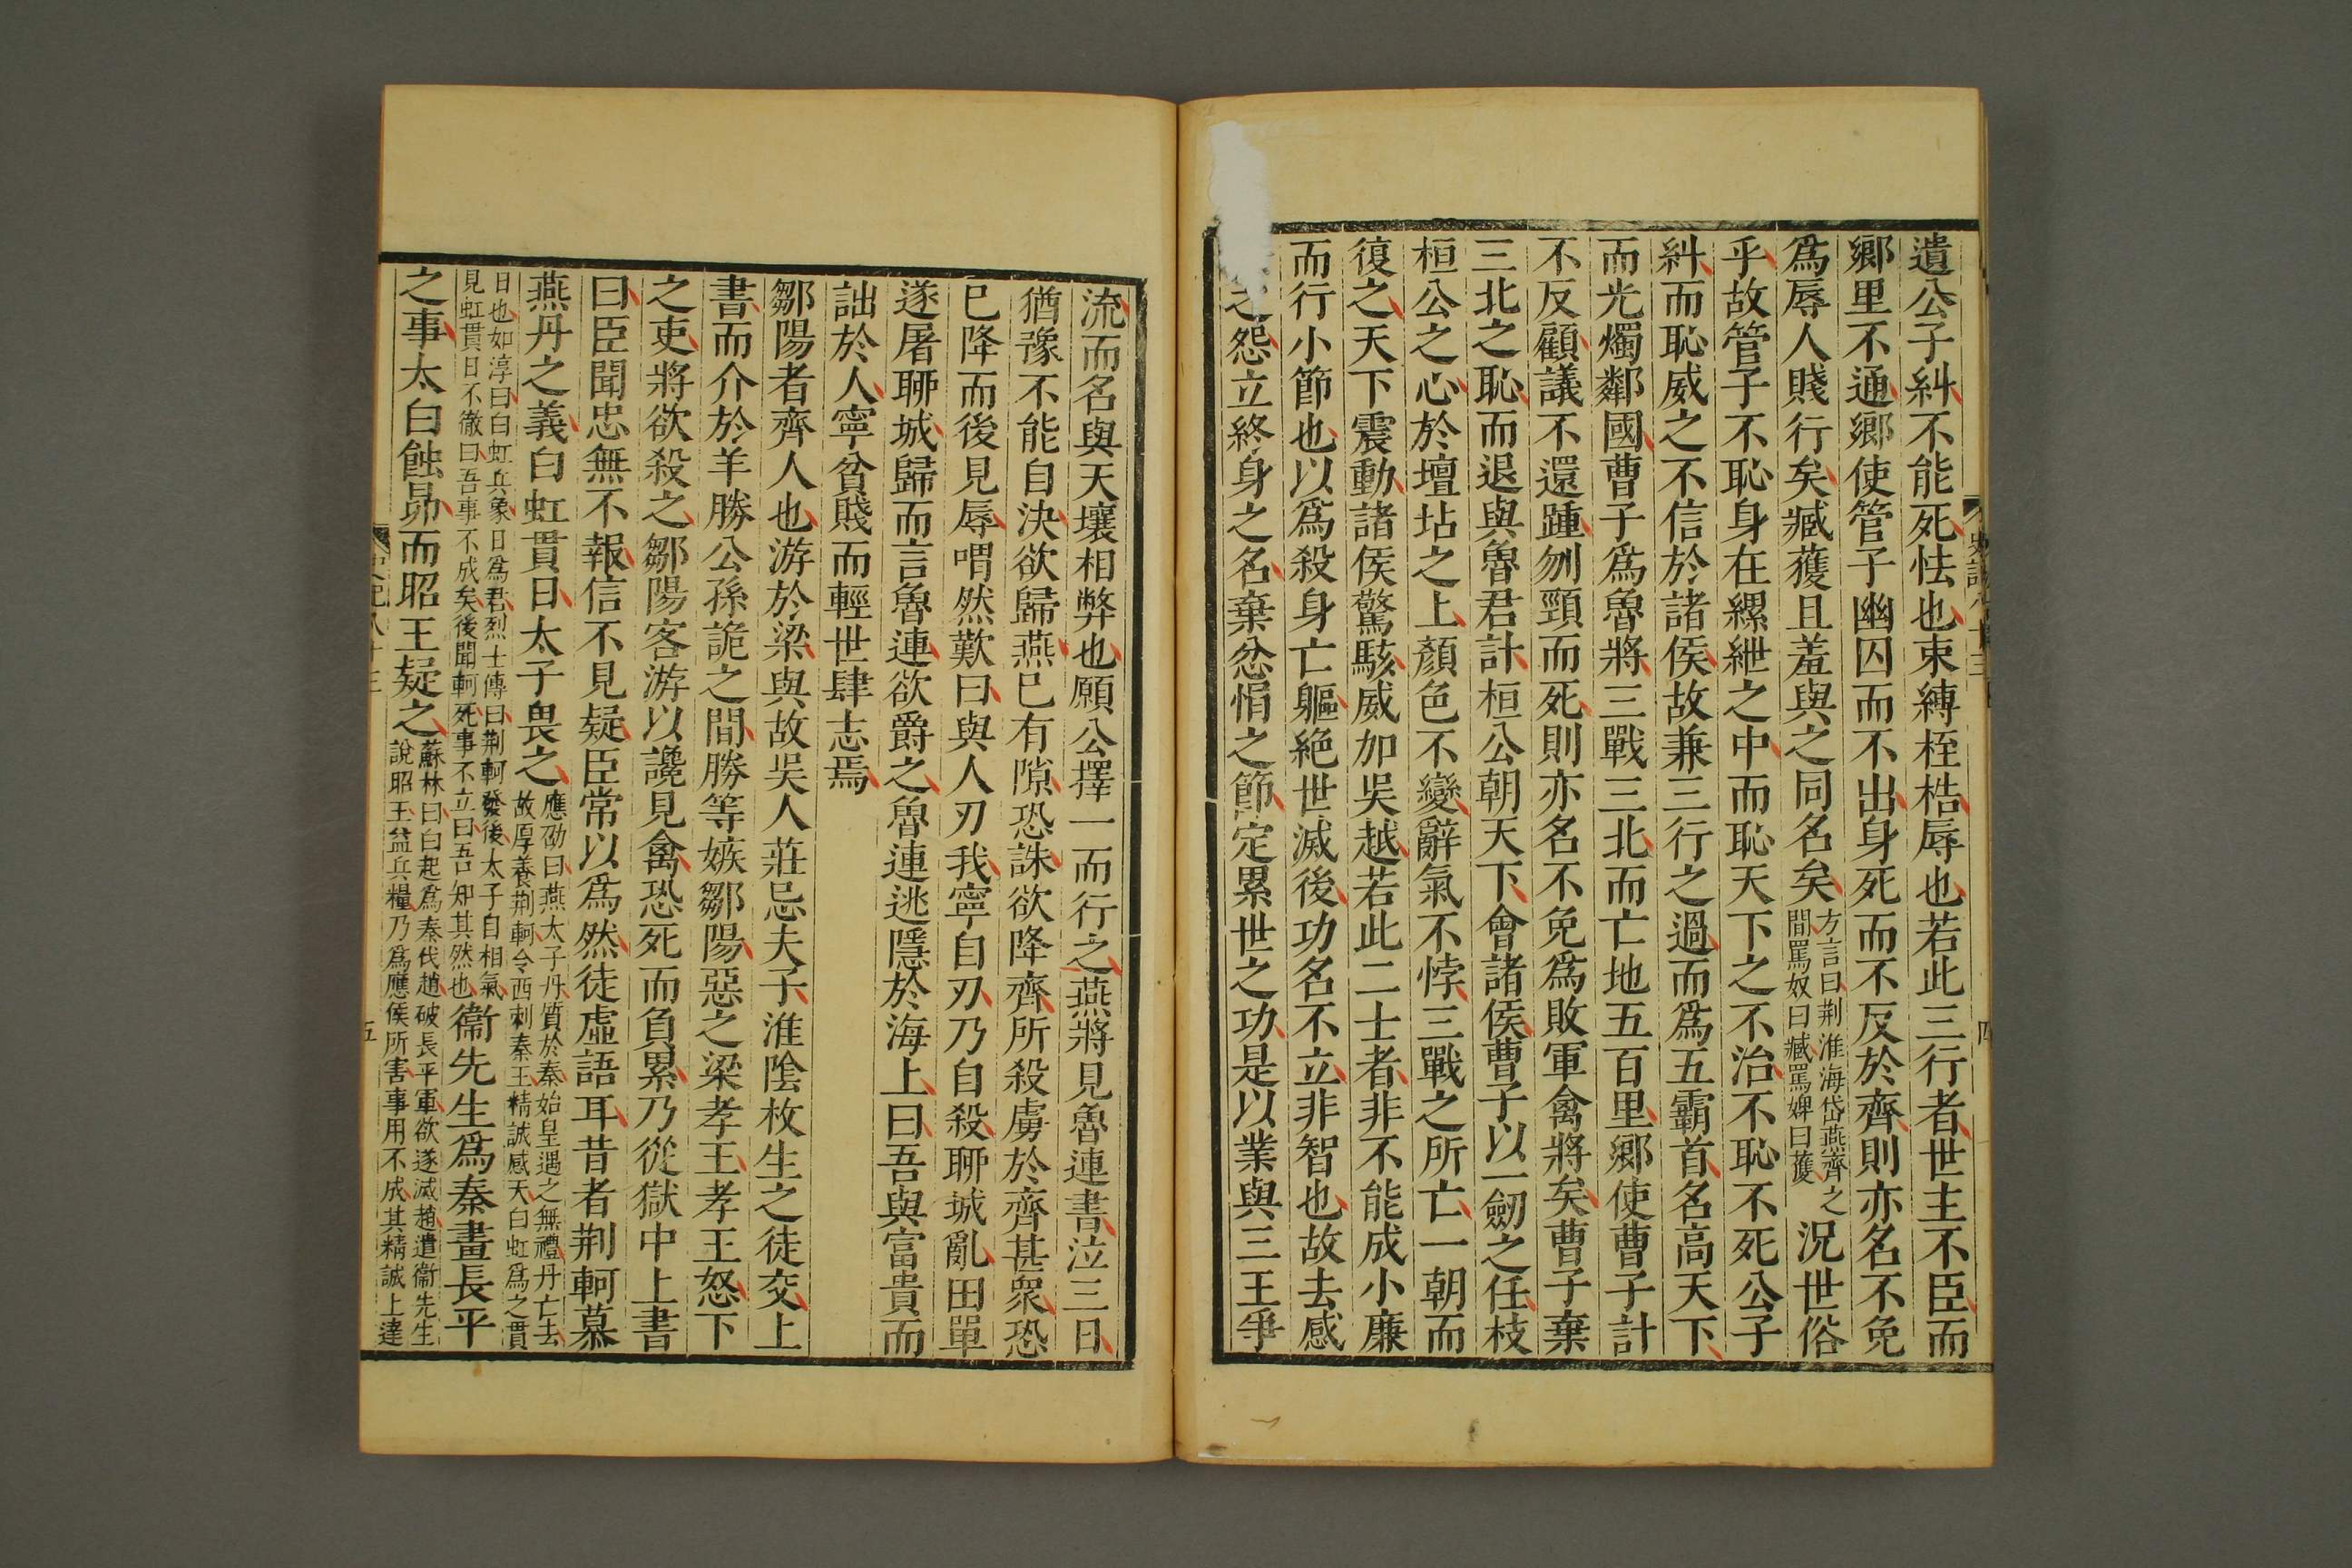 遺公子糾不能死怯也束縛桎梏辱也若此三行者世主不臣而
鄉里不通鄉使管子幽囚而不出身死而不反於齊則亦名不免
爲辱人賤行矣臧獲且羞與之同名矣方言曰荆淮海岱燕齊之間罵奴曰臧罵婢曰獲況世俗
乎故管子不恥身在縲紲之中而恥天下之不治不恥不死公子
糾而恥威之不信於諸侯故兼三行之過而爲五霸首名高天下
而光燭鄰國曹子爲魯將三戰三北而亡地五百里鄉使曹子計
不反顧議不還踵刎頸而死則亦名不免爲敗軍禽將矣曹子棄
三北之恥而退與魯君計桓公朝天下會諸侯曹子以一劒之任枝
桓公之心於壇坫之上顏色不變辭氣不悖三戰之所亡一朝而
復之天下震動諸侯驚駭威加吳越若此二士者非不能成小廉
而行小節也以爲殺身亡軀絕世滅後功名不立非智也故去感
之怨立終身之名棄忿悁之節定累世之功是以業與三王爭
史記八十三
四
流而名與天壤相弊也願公擇一而行之燕將見魯連書泣三日
猶豫不能自決欲歸燕已有隙恐誅欲降齊所殺虜於齊甚衆恐
已降而後見辱喟然歎曰與人刃我寧自刃乃自殺聊城亂田單
遂屠聊城歸而言魯連欲爵之魯連逃隱於海上曰吾與富貴而
詘於人寧貧賤而輕世肆志焉
鄒陽者齊人也游於梁與故吳人莊忌夫子淮陰枚生之徒交上
書而介於羊勝公孫詭之間勝等嫉鄒陽惡之梁孝王孝王怒下
之吏將欲殺之鄒陽客游以讒見禽恐死而負累乃從獄中上書
曰臣聞忠無不報信不見疑臣常以爲然徒虛語耳昔者荆軻慕
燕丹之義白虹貫日太子畏之應劭曰燕太子丹質於秦始皇遇之無禮丹亡去故厚養荆軻令西刺秦王精誠感天白虹爲之貫
日也如淳曰白虹兵象日爲君烈士傳曰荆軻發後太子自相氣見虹貫日不徹曰吾事不成矣後聞軻死事不立曰吾知其然也衞先生爲秦畫長平
之事太白蝕昴而昭王疑之蘇林曰白起爲秦伐趙破長平軍欲遂滅趙遣衞先生說昭王益兵糧乃爲應侯所害事用不成其精誠上達
史記八十三
五